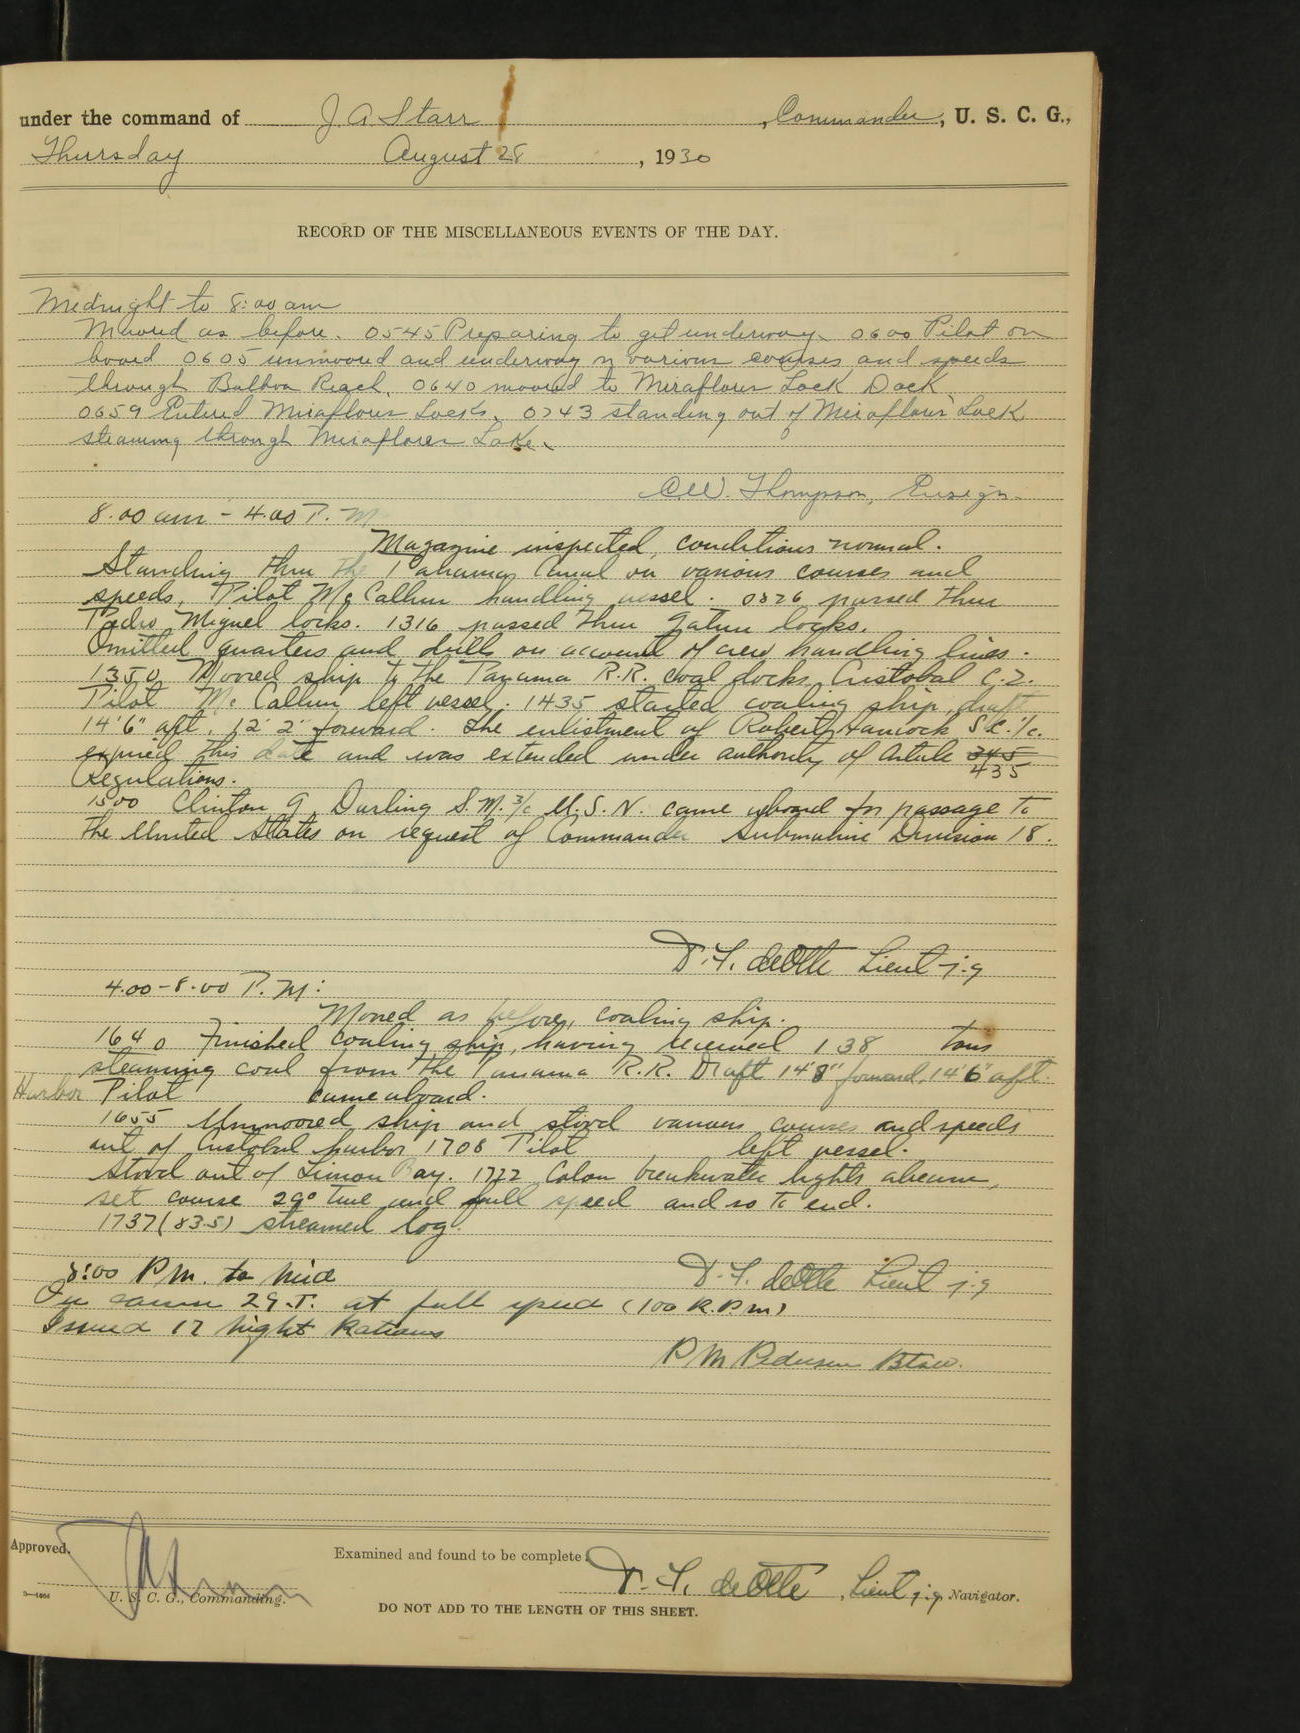 under the command of J. A. Starr, Commander, U. S. C. G.,
Thursday August 28, 1930
RECORD OF THE MISCELLANEOUS EVENTS OF THE DAY.
Midnight to 8:00 am
Moored as before. 0545 Preparing to get underway. 0600 Pilot on
board 0605 unmoored and underway on various courses and speeds
through Balboa Reach. 0640 moored to Miraflores Lock Dock
0659 Entered Miraflores Locks. 0743 standing out of Miraflores Lock
steaming through Miraflores Lake.
C.W. Thompson, Ensign.
8.00 am - 4.00 P. M
Magazine inspected, conditions normal.
Standing thru the Panama Canal on various courses and
speeds, Pilot McCallum handling vessel. 0826 passed thru
Pedro Miguel locks. 1316 passed thru Gatun locks.
Omitted quarters and drills on account of crew handling lines.
1350 Moored ship to the Panama R.R. coal docks Cristobal C.Z.
Pilot McCallum left vessel. 1435 started coaling ship, draft
14'6" aft, 12'2" forward. The enlistment of Robert Hancock SC.1/c.
expired this date and was extended under authority of Article 345
435
Regulations.
1500 Clinton G. Darling S.M. 3/c U.S.N. came aboard for passage to
the United States on request of Commander Submarine Division 18.
D.F. deOtte Lieut j.g
4.00-8.00 P. M:
Moored as before, coaling ship.
1640 Finished coaling ship, having received 138 tons
steaming coal from the Panama R.R. Draft 14'8" forward, 14'6" aft.
Harbor Pilot came aboard.
1655 Unmoored ship and stood various courses and speeds
out of Cristobal harbor 1708 Pilot left vessel.
Stood out of Limon Bay. 1722 Colon breakwater lights abeam,
set course 29° true and full speed and so to end.
1737 (83.5) streamed log.
8:00 P.M. to Mid
D.F. deOtte Lieut j.g
On course 29.T. at full speed (100 R.P.M)
Issued 17 night Rations
P M Pedersen Btsw.
Approved.
Examined and found to be complete:
D. F. deOtte, Lieut j.g., Navigator.
U. S. C. G., Commanding.
DO NOT ADD TO THE LENGTH OF THIS SHEET.